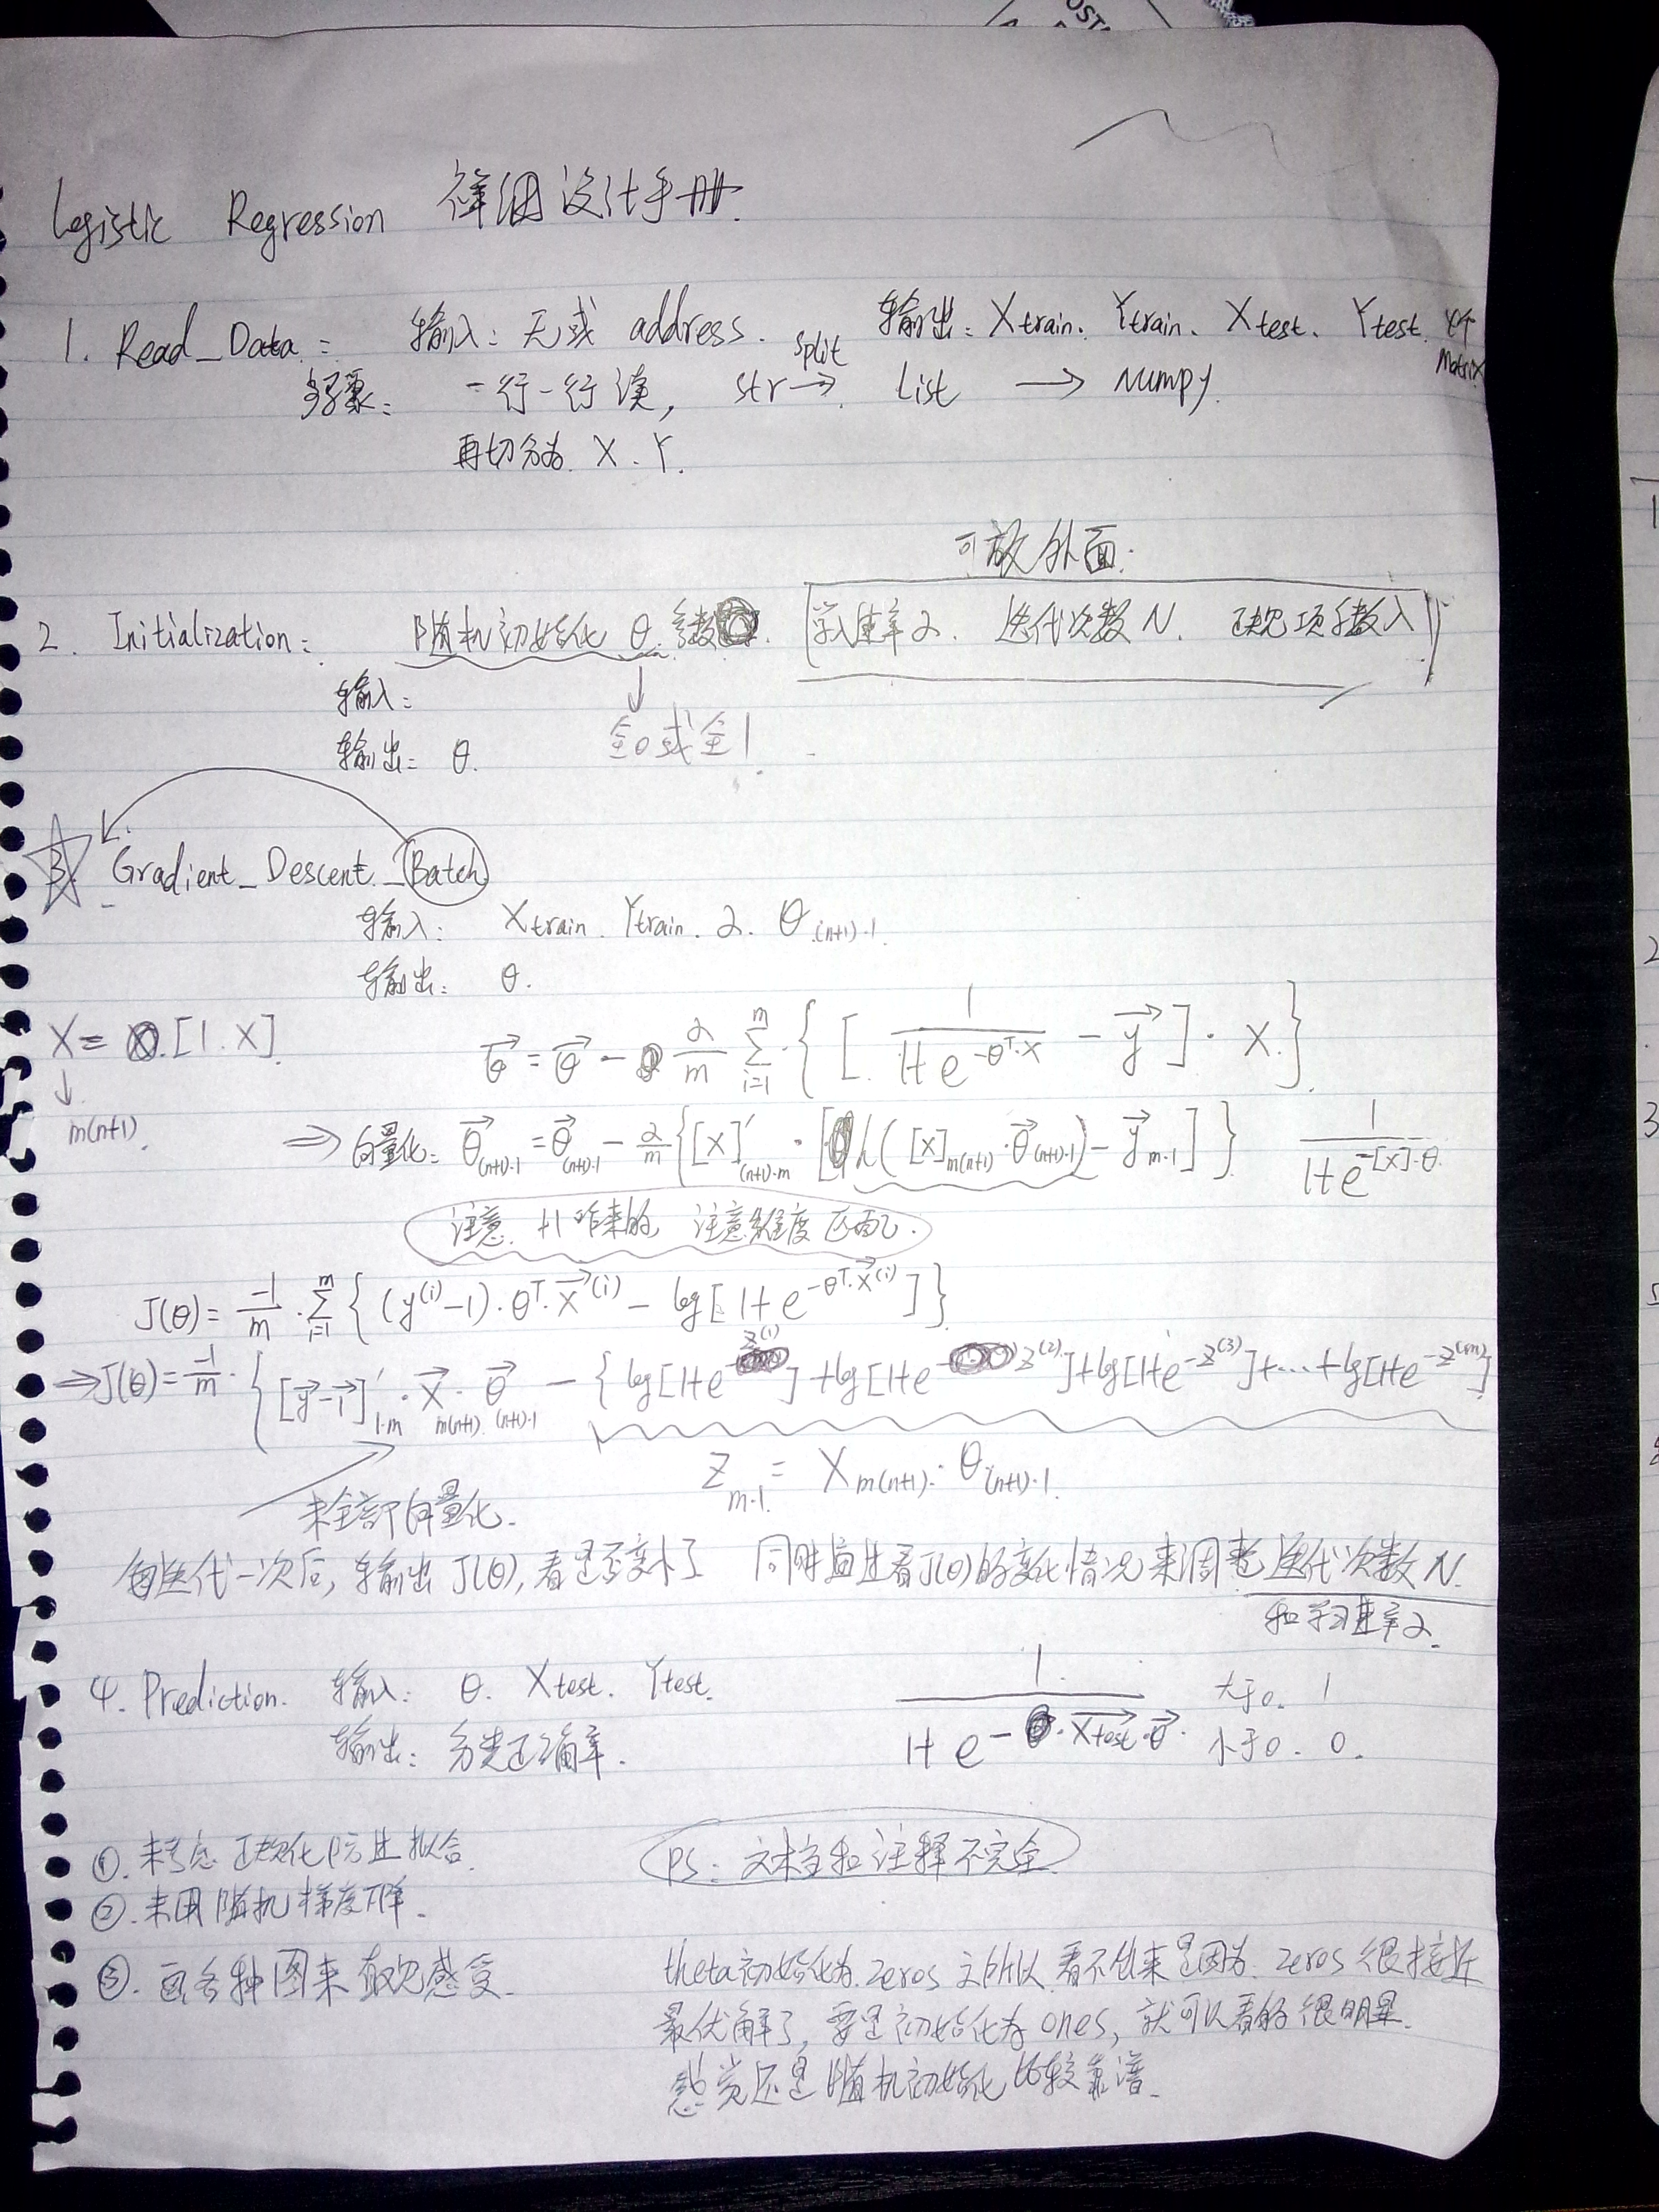 Logistic Regression 详细设计手册.
1. Read_Data: 输入: 无或 address. 输出: Xtrain. Ytrain. Xtest. Ytest. 4个 Matrix
步骤: 一行一行读, str →split list → numpy.
再切分为 X. Y.
可放外面:
2. Initialization: 随机初始化 θ 系数. 学习速率 α. 迭代次数 N. 正规项系数 λ
输入:
↓
全0或全1
输出: θ.
3. Gradient_Descent_Batch
输入: Xtrain. Ytrain. α. θ(n+1)·1.
输出: θ.
X = [1. X].
↓
m(n+1).
θ⃗ = θ⃗ - α/m Σ_{i=1}^{m} {[ 1/(1+e^{-θ^T·X}) - y⃗ ] · X.}
⇒ 向量化: θ⃗(n+1)·1 = θ⃗(n+1)·1 - α/m {[X]'(n+1)·m · [h([X]m(n+1) · θ⃗(n+1)·1) - y⃗m·1]} 1/(1+e^{-[X]·θ})
注意 +1 咋来的 注意维度匹配.
J(θ) = -1/m · Σ_{i=1}^{m} {(y^(i)-1)·θ^T·x⃗^(i) - log[1+e^{-θ^T·x⃗^(i)}]}
⇒J(θ) = -1/m · {[y⃗-1⃗]'1·m · X⃗m(n+1) · θ⃗(n+1)·1 - {log[1+e^{-z^(1)}] + log[1+e^{-z^(2)}] + log[1+e^{-z^(3)}] + ... + log[1+e^{-z^(m)}]
Zm·1 = Xm(n+1) · θ(n+1)·1
未全部向量化.
每迭代一次后, 输出 J(θ), 看是否变小了 同时通过看J(θ)的变化情况来调整迭代次数 N.
和学习速率 α.
4. Prediction. 输入: θ. Xtest. Ytest. 1/(1+e^{-Xtest·θ⃗}) 大于0. 1
输出: 分类正确率. 小于0. 0.
①. 未考虑正规化防过拟合. PS: 文档和注释不完全.
②. 未用随机梯度下降.
③. 画各种图来直观感受.
theta初始化为 zeros 之所以看不出来是因为 zeros 很接近
最优解了, 要是初始化为 ones, 就可以看的很明显.
感觉还是随机初始化比较靠谱.